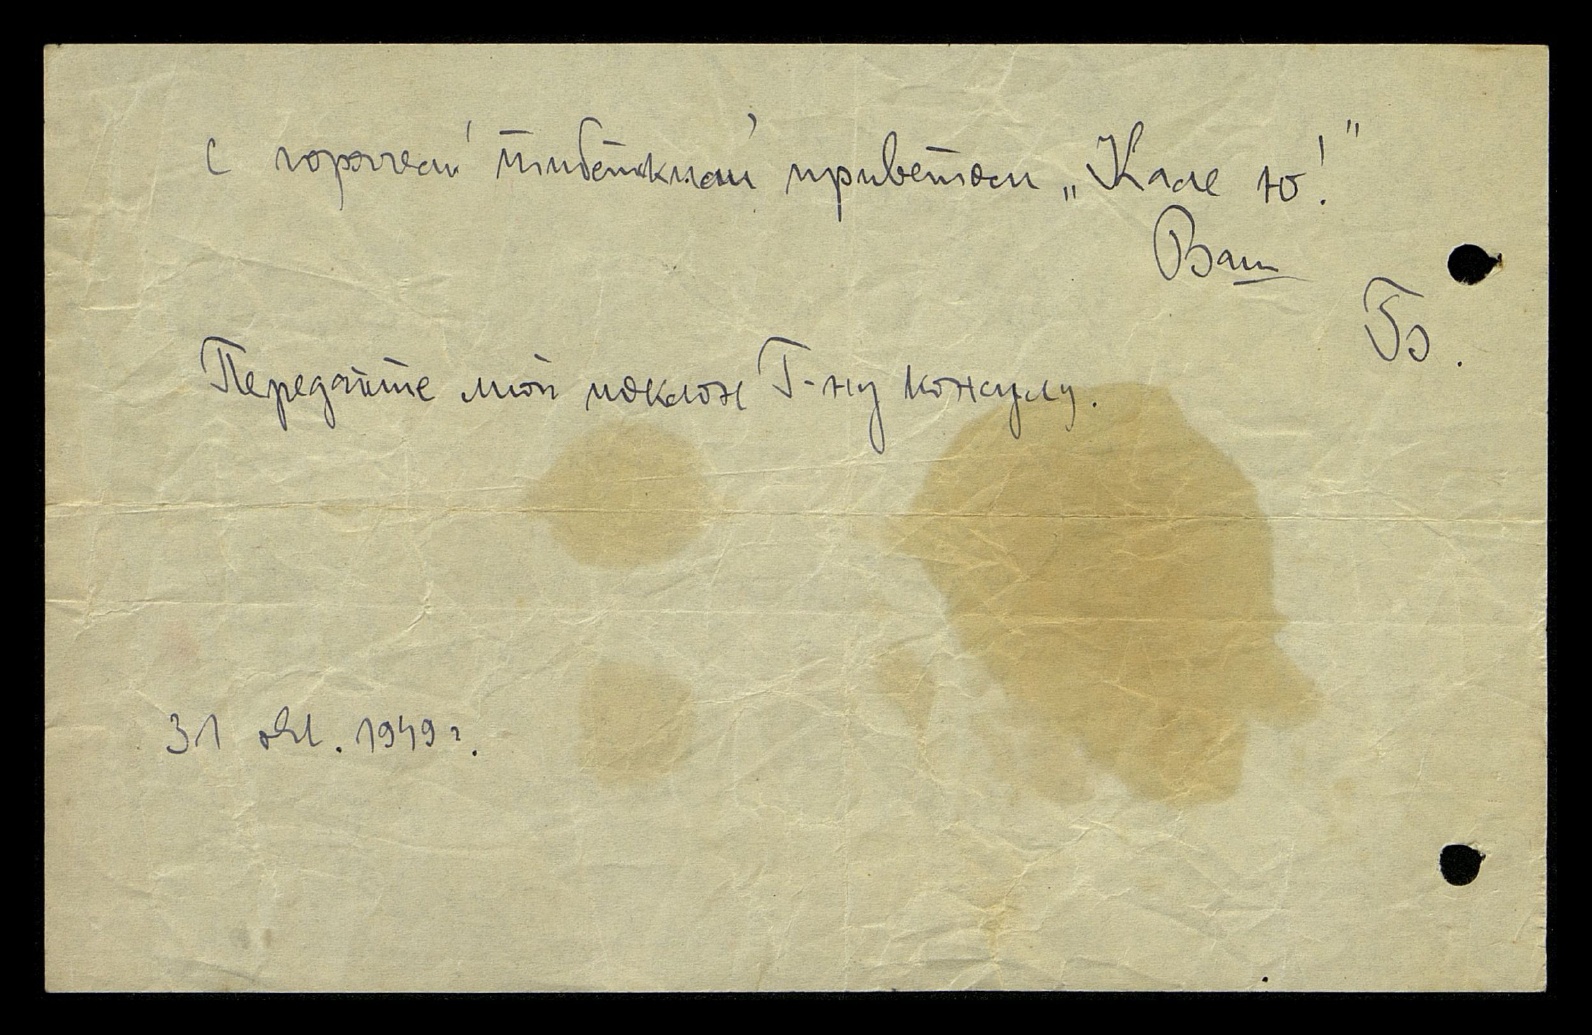 с горячим тибетским приветом „Кале ю!"
Ваш
Б.
Передайте мой поклон Г-ну консулу.
31 окт. 1949 г.